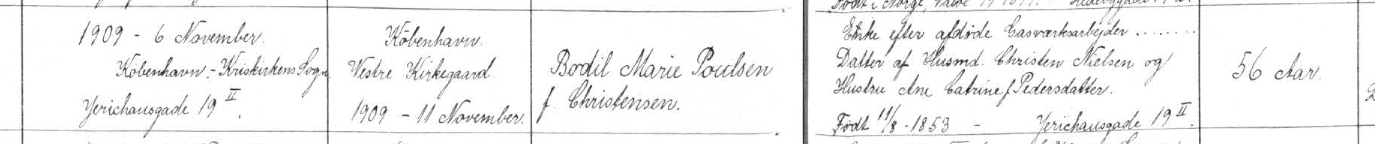 1909 - 6 November.
København - Kriskirkens Sogn
Jerichausgade 19 II.
København.
Vestre Kirkegaard
1909 - 11 November.
Bodil Marie Poulsen
f. Christensen.
Enke efter afdöde Gasværksarbejder ........
Datter af Husmd. Christen Nielsen og
Hustru Ane Catrine f. Pedersdatter.
Födt 11/8 - 1853 - Jerichausgade 19 II.
56 Aar.